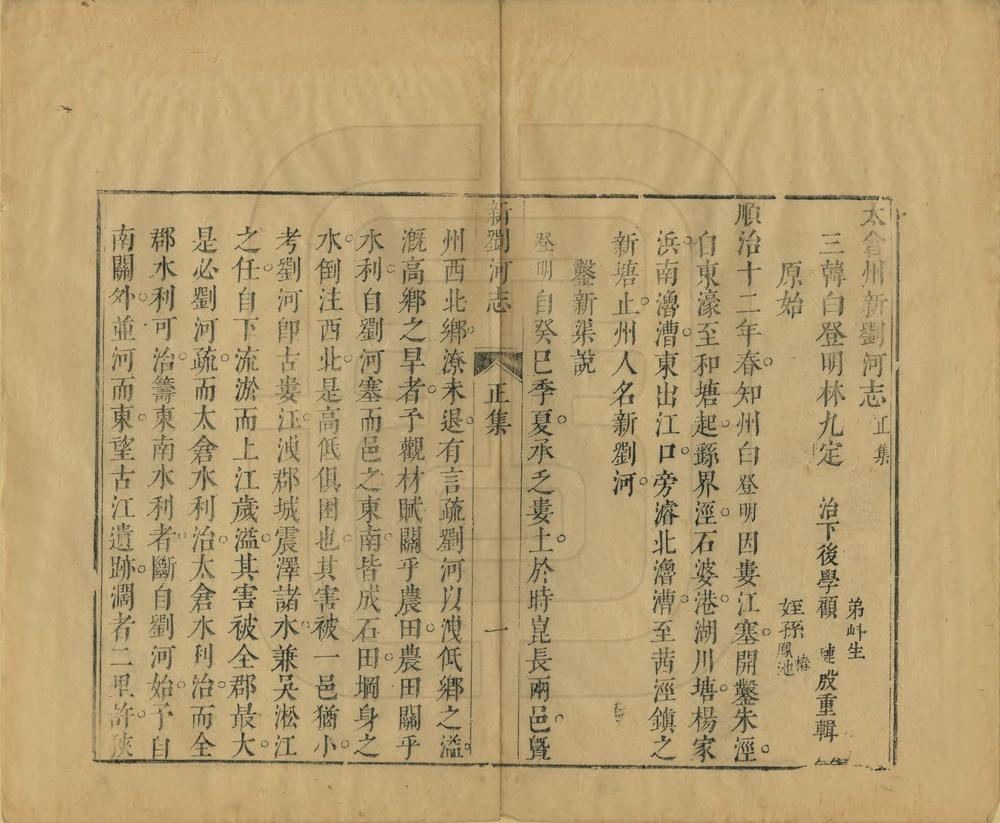 太倉州新劉河志正集
三韓白登明林九定 治下後學顧 璉成重輯
弟㞳生
姪孫鳳池椿
原始
順治十二年春知州白登明因婁江塞開鑿朱涇
自東濠至和塘起繇界涇石婆港湖川塘楊家
浜南漕漕東出江口旁濬北漕漕至茜涇鎮之
新塘止州人名新劉河
鑿新渠說
登明自癸巳季夏承乏婁土於時崑長兩邑曁
新劉河志 正集 一
州西北鄉潦未退有言疏劉河以洩低鄉之溢
溉高鄉之旱者予觀材賦關乎農田農田關乎
水利自劉河塞而邑之東南皆成石田堈身之
水倒注西北是高低俱困也其害被一邑猶小
考劉河卽古婁江洩郡城震澤諸水兼吳淞江
之任自下流淤而上江歲溢其害被全郡最大
是必劉河疏而太倉水利治太倉水利治而全
郡水利可治籌東南水利者斷自劉河始予自
南關外並河而東望古江遺跡濶者二里許狹